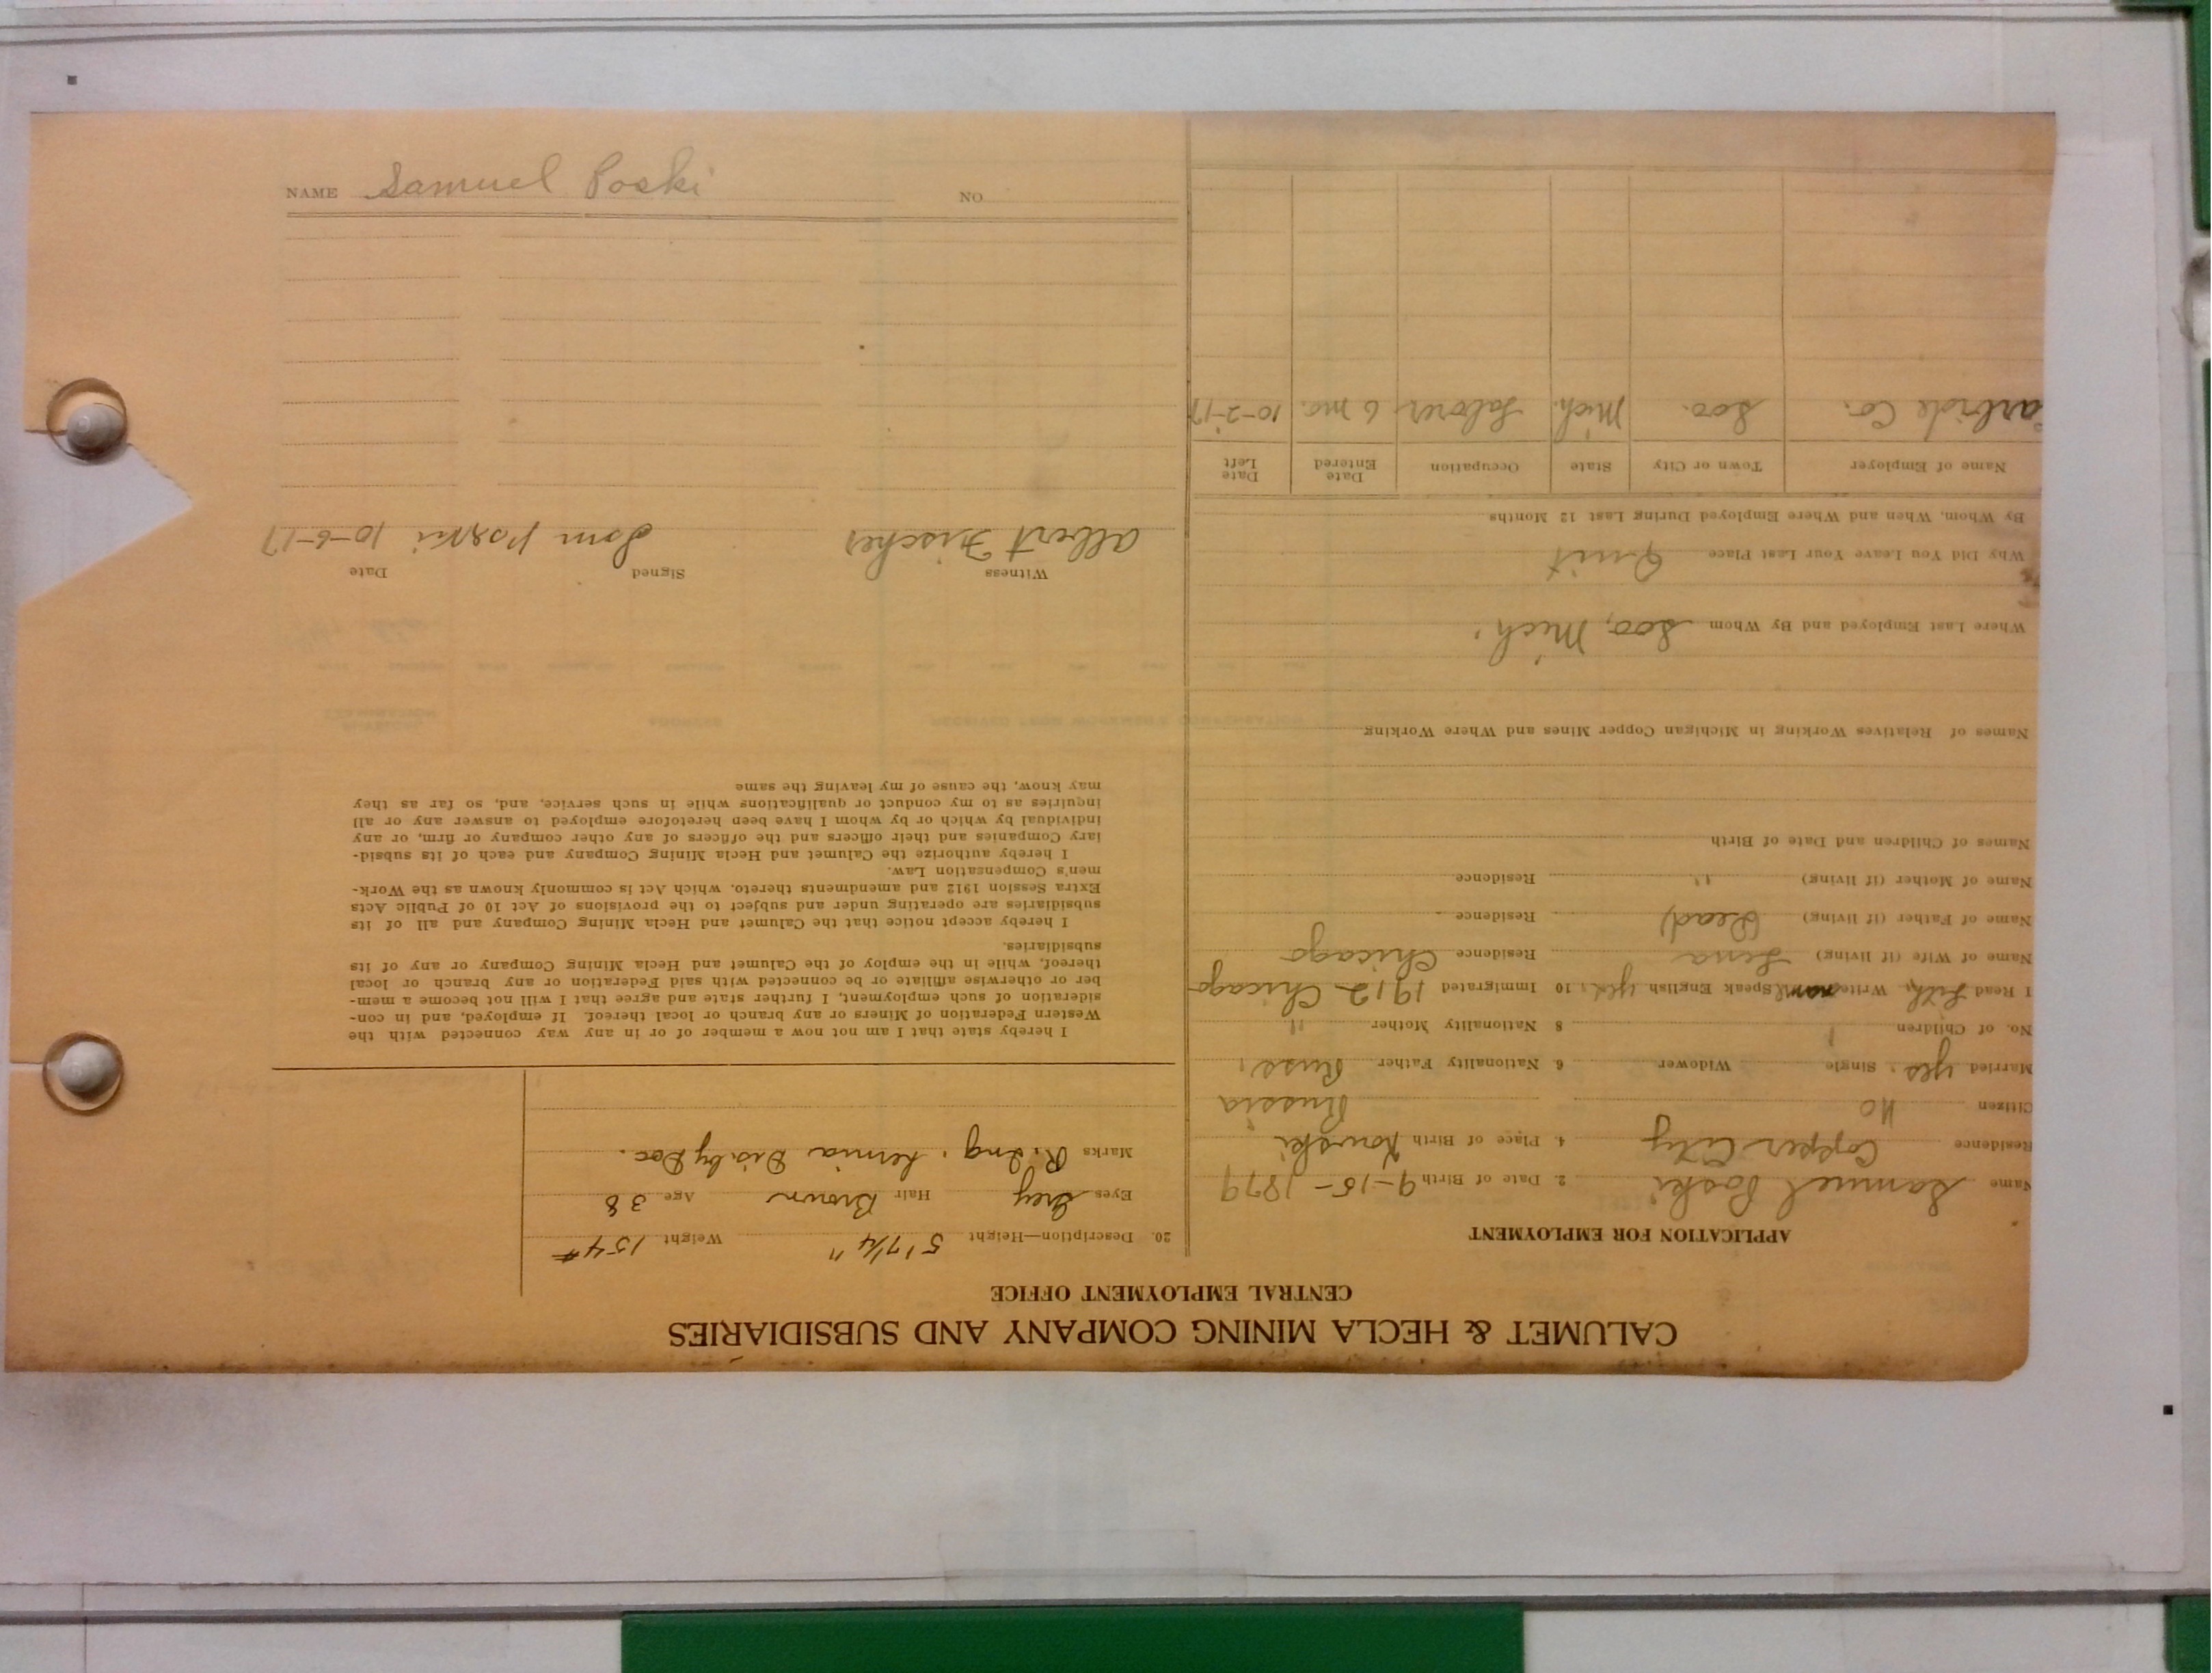 CALUMET & HECLA MINING COMPANY AND SUBSIDIARIES
CENTRAL EMPLOYMENT OFFICE
APPLICATION FOR EMPLOYMENT
Name Samuel Poski 2. Date of Birth 9-15-1879
Residence Copper City 4. Place of Birth Kowski
Citizen no Russia
Married yes. Single Widower 6 Nationality Father Russ.
No. of Children 1 8 Nationality Mother "
I Read Lith. Write Speak English yes. 10 Immigrated 1912 Chicago
Name of Wife (if living) Lena Residence Chicago
Name of Father (if living) (Dead) Residence
Name of Mother (if living) " Residence
Names of Children and Date of Birth
Names of Relatives Working in Michigan Copper Mines and Where Working
Where Last Employed and By Whom Soo, Mich.
Why Did You Leave Your Last Place Quit
By Whom, When and Where Employed During Last 12 Months
Name of Employer Town or City State Occupation Date Entered Date Left
arbide Co. Soo. Mich. Laborer 6 mo. 10-2-17
20. Description—Height 5'7 1/4" Weight 154#
Eyes Grey Hair Brown Age 38
Marks R. Ing. Hernia Dis by Doc.
I hereby state that I am not now a member of or in any way connected with the
Western Federation of Miners or any branch or local thereof. If employed, and in con-
sideration of such employment, I further state and agree that I will not become a mem-
ber or otherwise affiliate or be connected with said Federation or any branch or local
thereof, while in the employ of the Calumet and Hecla Mining Company or any of its
subsidiaries.
I hereby accept notice that the Calumet and Hecla Mining Company and all of its
subsidiaries are operating under and subject to the provisions of Act 10 of Public Acts
Extra Session 1912 and amendments thereto, which Act is commonly known as the Work-
men's Compensation Law.
I hereby authorize the Calumet and Hecla Mining Company and each of its subsid-
iary Companies and their officers and the officers of any other company or firm, or any
individual by which or by whom I have been heretofore employed to answer any or all
inquiries as to my conduct or qualifications while in such service, and, so far as they
may know, the cause of my leaving the same
Witness Signed Date
Albert Fischer Som Poski 10-6-17
NAME Samuel Poski NO